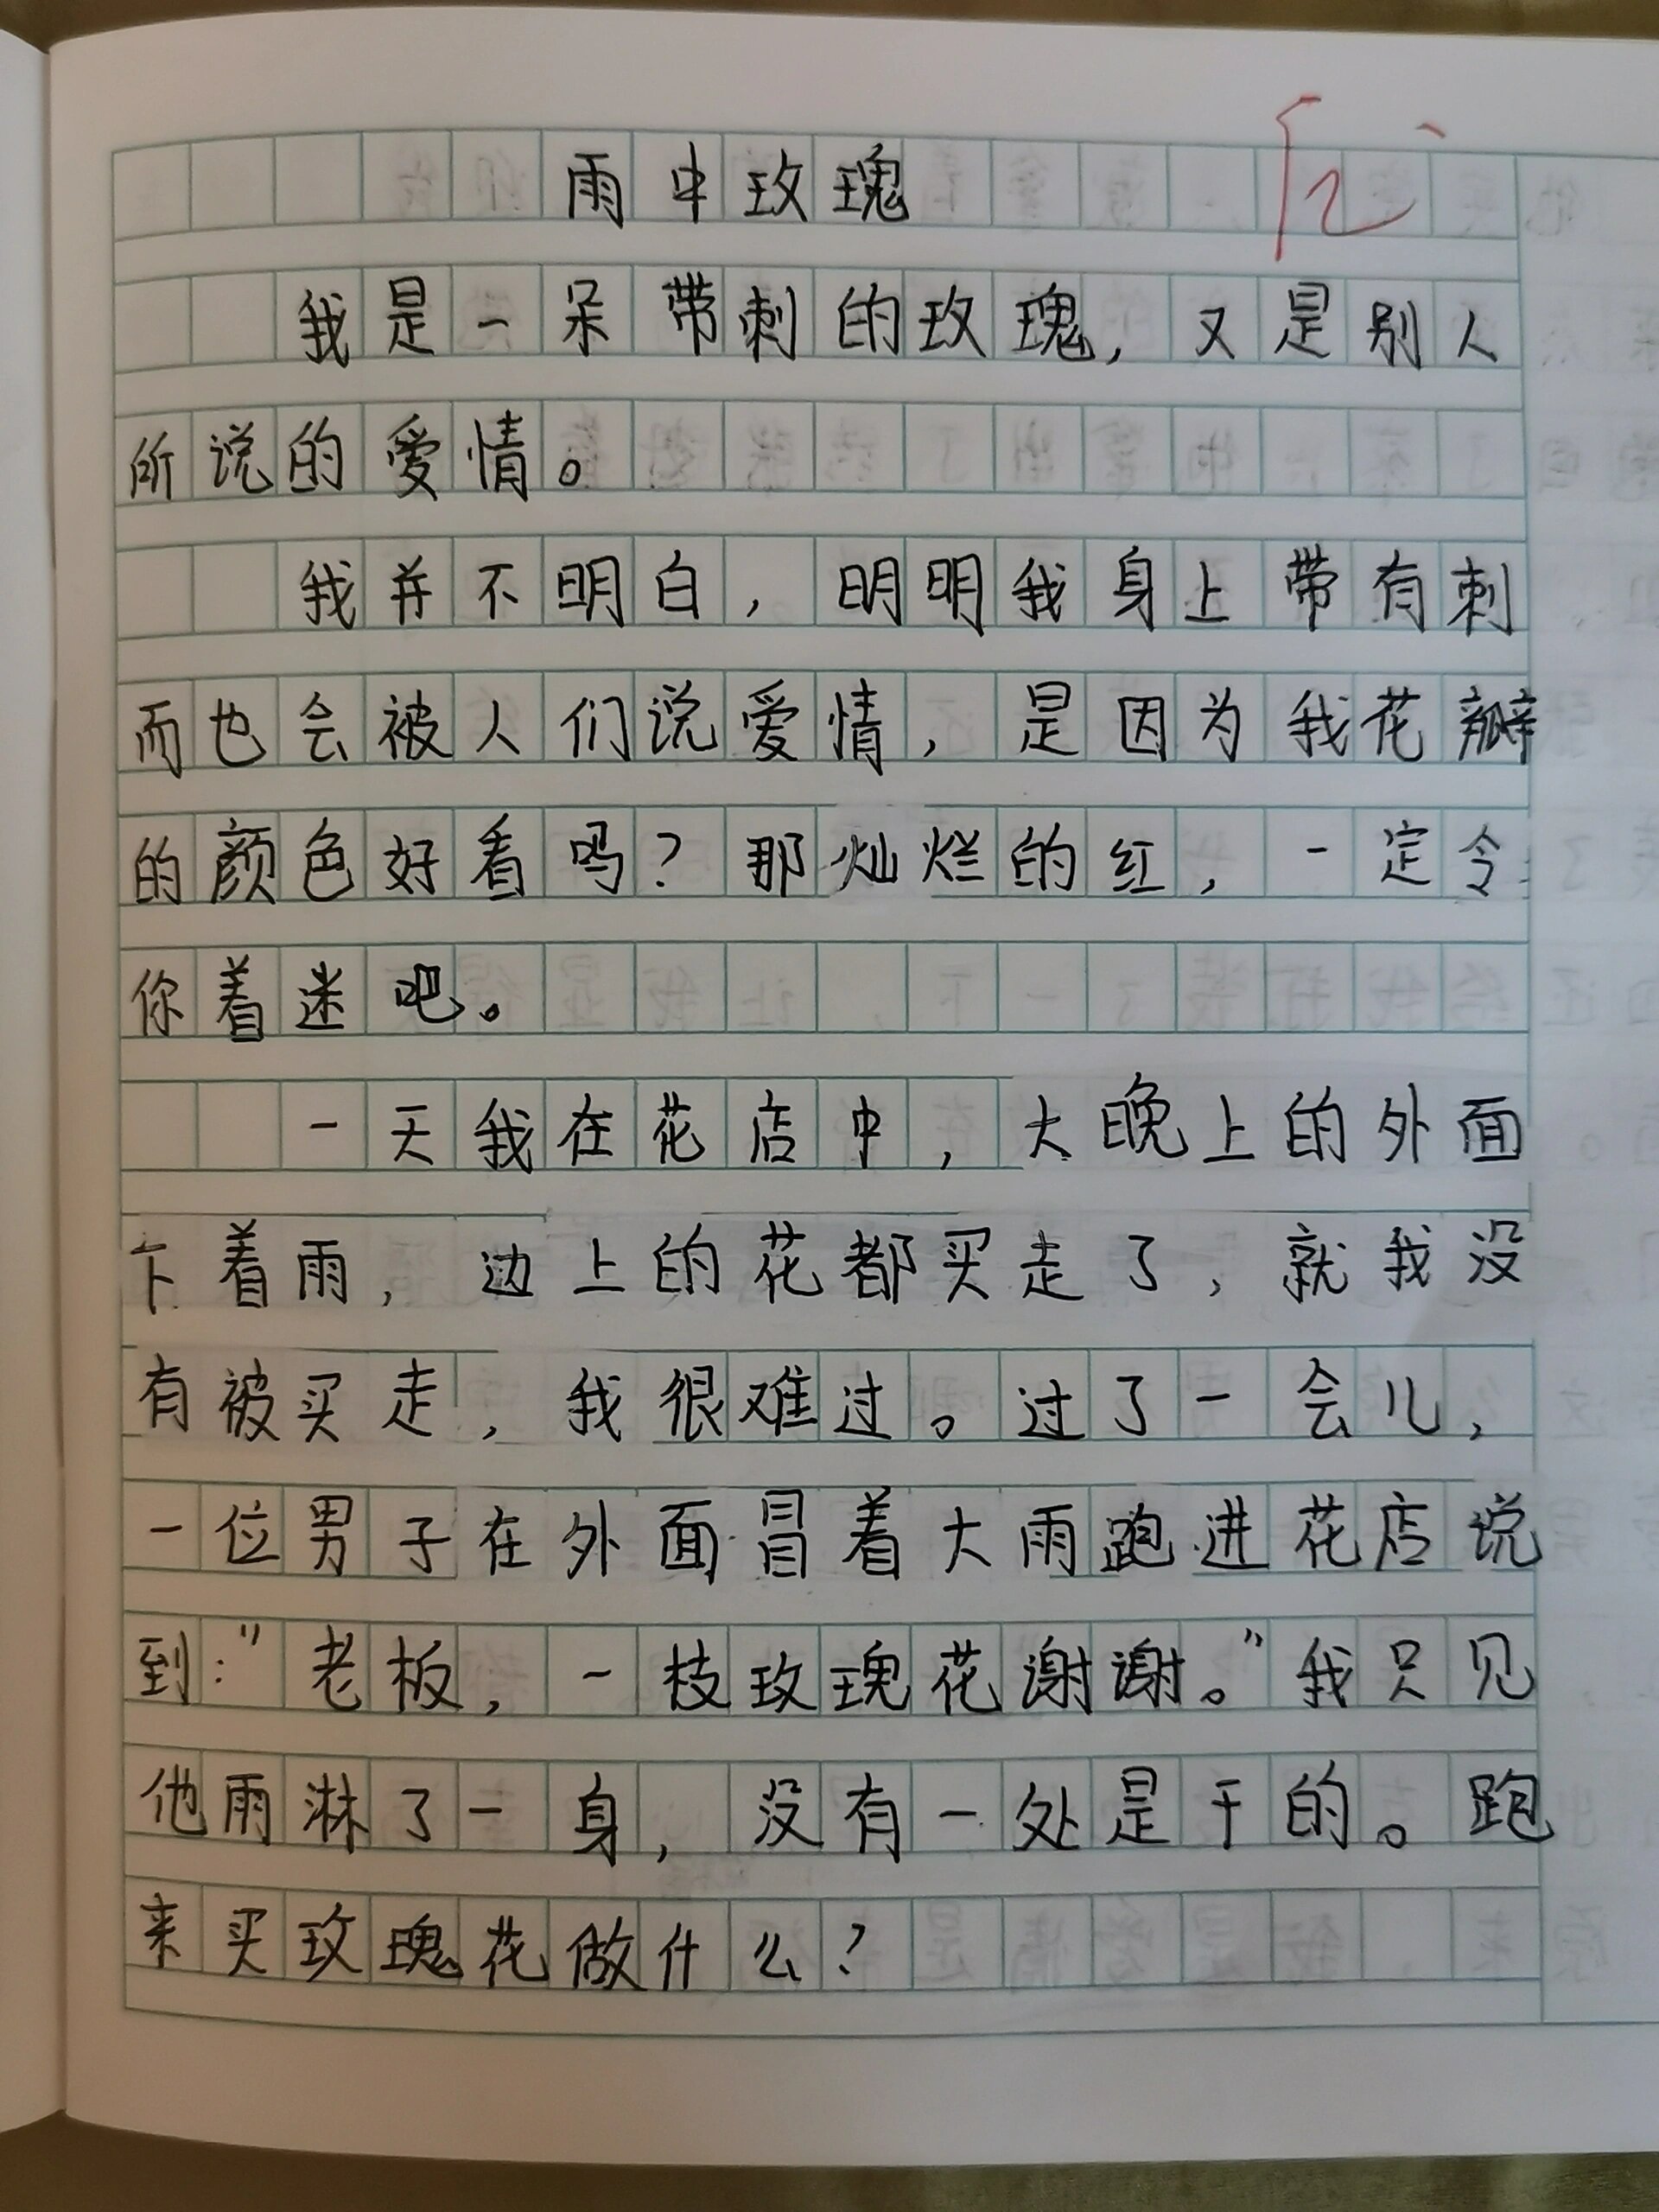 雨中玫瑰
我是一朵带刺的玫瑰，又是别人
所说的爱情。
我并不明白，明明我身上带有刺
而也会被人们说爱情，是因为我花瓣
的颜色好看吗？那灿烂的红，一定令
你着迷吧。
一天我在花店中，大晚上的外面
下着雨，边上的花都买走了，就我没
有被买走，我很难过。过了一会儿，
一位男子在外面冒着大雨跑进花店说
到："老板，一枝玫瑰花谢谢。"我只见
他雨淋了一身，没有一处是干的。跑
来买玫瑰花做什么？